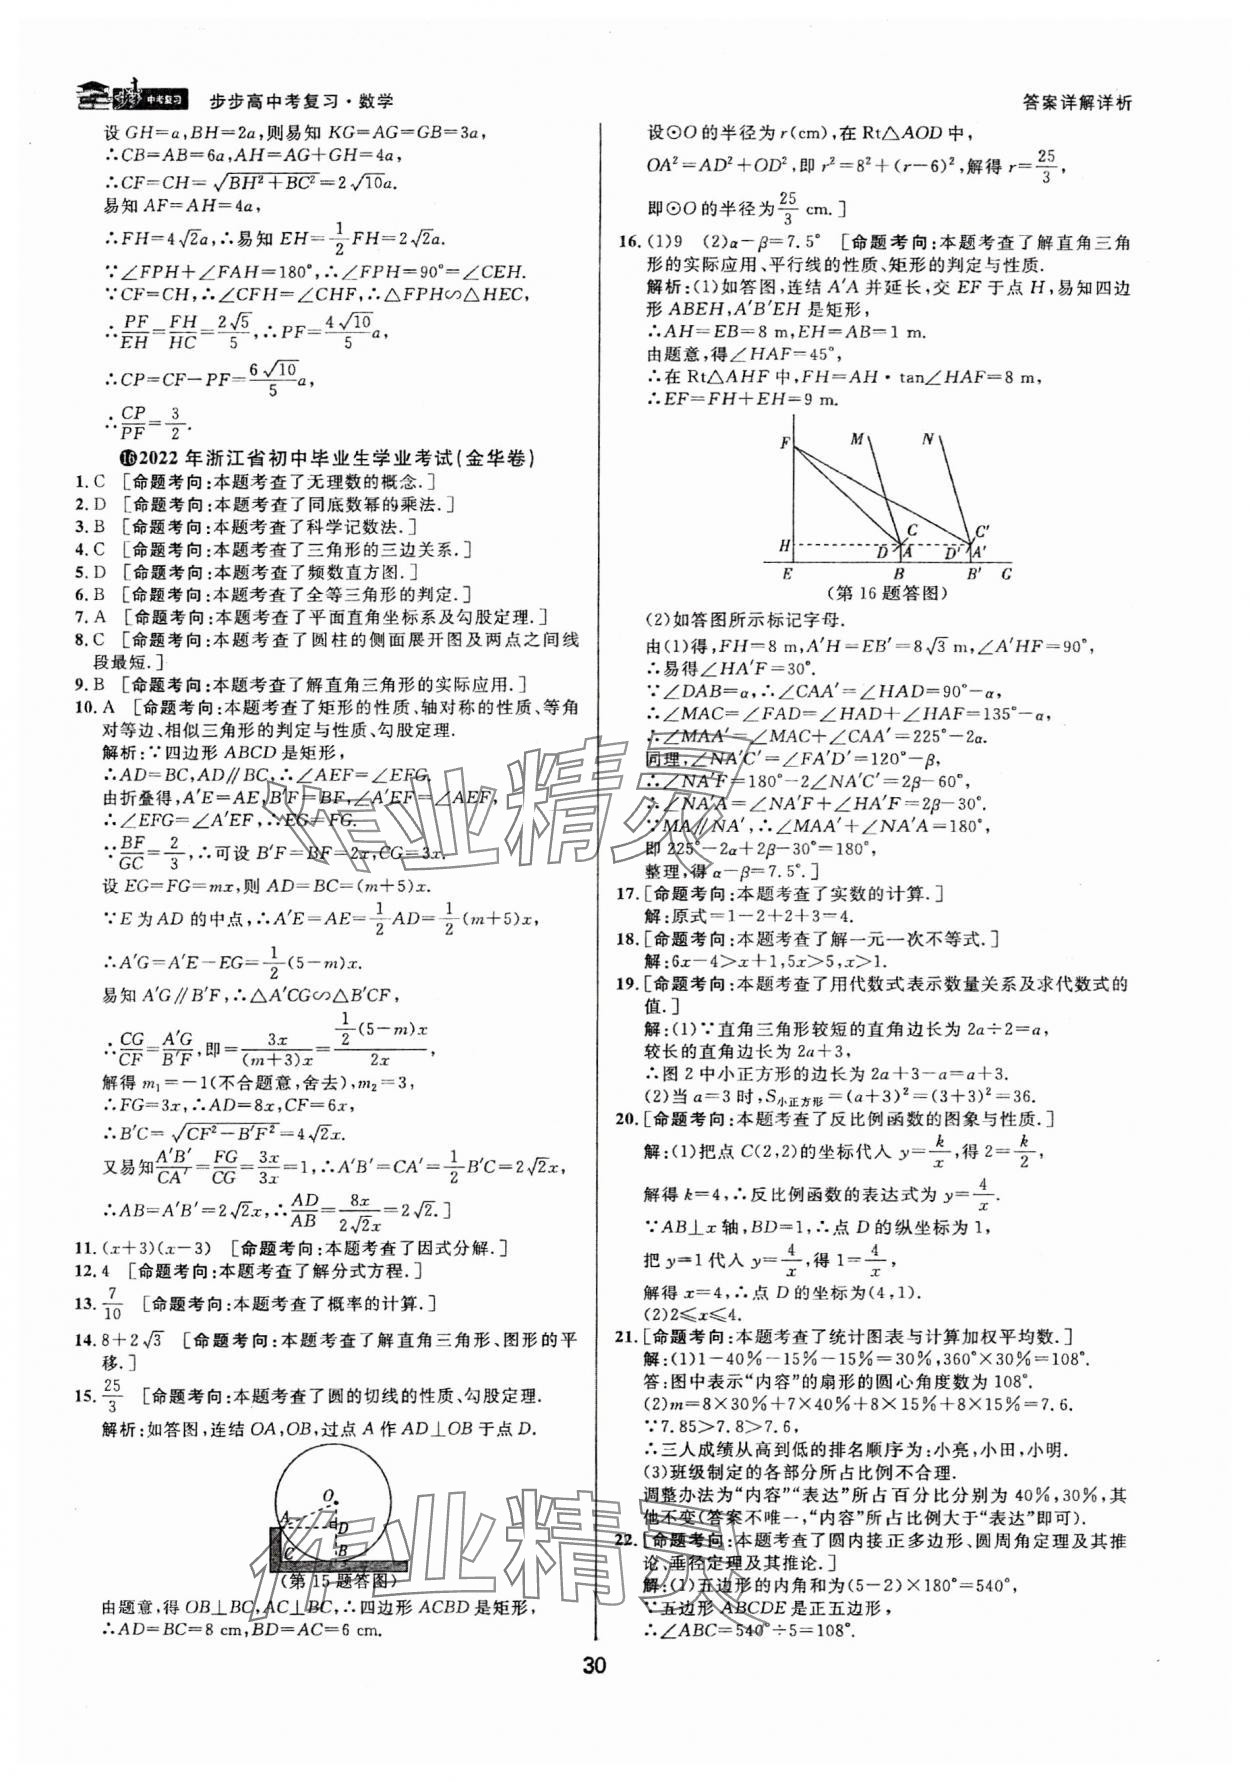 中考复习
步步高中考复习·数学
答案详解详析
设 GH=a,BH=2a,则易知 KG=AG=GB=3a,
∴CB=AB=6a,AH=AG+GH=4a,
∴CF=CH=√(BH²+BC²)=2√10a.
易知 AF=AH=4a,
∴FH=4√2a,∴易知 EH=1/2FH=2√2a.
∵∠FPH+∠FAH=180°,∴∠FPH=90°=∠CEH.
∵CF=CH,∴∠CFH=∠CHF,∴△FPH∽△HEC,
∴PF/EH=FH/HC=2√5/5,∴PF=4√10/5a,
∴CP=CF-PF=6√10/5a,
∴CP/PF=3/2.
⓰2022年浙江省初中毕业生学业考试(金华卷)
1. C [命题考向:本题考查了无理数的概念.]
2. D [命题考向:本题考查了同底数幂的乘法.]
3. B [命题考向:本题考查了科学记数法.]
4. C [命题考向:本题考查了三角形的三边关系.]
5. D [命题考向:本题考查了频数直方图.]
6. B [命题考向:本题考查了全等三角形的判定.]
7. A [命题考向:本题考查了平面直角坐标系及勾股定理.]
8. C [命题考向:本题考查了圆柱的侧面展开图及两点之间线
段最短.]
9. B [命题考向:本题考查了解直角三角形的实际应用.]
10. A [命题考向:本题考查了矩形的性质、轴对称的性质、等角
对等边、相似三角形的判定与性质、勾股定理.
解析:∵四边形 ABCD 是矩形,
∴AD=BC,AD∥BC,∴∠AEF=∠EFG,
由折叠得,A′E=AE,B′F=BF,∠A′EF=∠AEF,
∴∠EFG=∠A′EF,∴EG=FG.
∵BF/GC=2/3,∴可设 B′F=BF=2x,CG=3x.
设 EG=FG=mx,则 AD=BC=(m+5)x.
∵E 为 AD 的中点,∴A′E=AE=1/2AD=1/2(m+5)x,
∴A′G=A′E-EG=1/2(5-m)x.
易知 A′G∥B′F,∴△A′CG∽△B′CF,
∴CG/CF=A′G/B′F,即3x/(m+3)x=1/2(5-m)x/2x,
解得 m₁=-1(不合题意,舍去),m₂=3,
∴FG=3x,∴AD=8x,CF=6x,
∴B′C=√(CF²-B′F²)=4√2x.
又易知A′B′/CA′=FG/CG=3x/3x=1,∴A′B′=CA′=1/2B′C=2√2x,
∴AB=A′B′=2√2x,∴AD/AB=8x/2√2x=2√2.]
11. (x+3)(x-3) [命题考向:本题考查了因式分解.]
12. 4 [命题考向:本题考查了解分式方程.]
13. 7/10 [命题考向:本题考查了概率的计算.]
14. 8+2√3 [命题考向:本题考查了解直角三角形、图形的平
移.]
15. 25/3 [命题考向:本题考查了圆的切线的性质、勾股定理.
解析:如答图,连结 OA,OB,过点 A 作 AD⊥OB 于点 D.
O
A
D
C
B
(第15题答图)
由题意,得 OB⊥BC,AC⊥BC,∴四边形 ACBD 是矩形,
∴AD=BC=8 cm,BD=AC=6 cm.
设⊙O 的半径为 r(cm),在 Rt△AOD 中,
OA²=AD²+OD²,即 r²=8²+(r-6)²,解得 r=25/3,
即⊙O 的半径为25/3 cm.]
16. (1)9 (2)α-β=7.5° [命题考向:本题考查了解直角三角
形的实际应用、平行线的性质、矩形的判定与性质.
解析:(1)如答图,连结 A′A 并延长,交 EF 于点 H,易知四边
形 ABEH,A′B′EH 是矩形,
∴AH=EB=8 m,EH=AB=1 m.
由题意,得∠HAF=45°,
∴在 Rt△AHF 中,FH=AH·tan∠HAF=8 m,
∴EF=FH+EH=9 m.
F
M
N
C
C′
H
D
A
D′
A′
E
B
B′
G
(第16题答图)
(2)如答图所示标记字母.
由(1)得,FH=8 m,A′H=EB′=8√3 m,∠A′HF=90°,
∴易得∠HA′F=30°.
∵∠DAB=α,∴∠CAA′=∠HAD=90°-α,
∴∠MAC=∠FAD=∠HAD+∠HAF=135°-α,
∴∠MAA′=∠MAC+∠CAA′=225°-2α.
同理,∠NA′C′=∠FA′D′=120°-β,
∴∠NA′F=180°-2∠NA′C′=2β-60°,
∴∠NA′A=∠NA′F+∠HA′F=2β-30°.
∵MA∥NA′,∴∠MAA′+∠NA′A=180°,
即 225°-2α+2β-30°=180°,
整理,得 α-β=7.5°.]
17. [命题考向:本题考查了实数的计算.]
解:原式=1-2+2+3=4.
18. [命题考向:本题考查了解一元一次不等式.]
解:6x-4>x+1,5x>5,x>1.
19. [命题考向:本题考查了用代数式表示数量关系及求代数式的
值.]
解:(1)∵直角三角形较短的直角边长为 2a÷2=a,
较长的直角边长为 2a+3,
∴图 2 中小正方形的边长为 2a+3-a=a+3.
(2)当 a=3 时,S小正方形=(a+3)²=(3+3)²=36.
20. [命题考向:本题考查了反比例函数的图象与性质.]
解:(1)把点 C(2,2)的坐标代入 y=k/x,得 2=k/2,
解得 k=4,∴反比例函数的表达式为 y=4/x.
∵AB⊥x 轴,BD=1,∴点 D 的纵坐标为 1,
把 y=1代入 y=4/x,得 1=4/x,
解得 x=4,∴点 D 的坐标为(4,1).
(2)2≤x≤4.
21. [命题考向:本题考查了统计图表与计算加权平均数.]
解:(1)1-40%-15%-15%=30%,360°×30%=108°.
答:图中表示“内容”的扇形的圆心角度数为 108°.
(2)m=8×30%+7×40%+8×15%+8×15%=7.6.
∵7.85>7.8>7.6,
∴三人成绩从高到低的排名顺序为:小亮,小田,小明.
(3)班级制定的各部分所占比例不合理.
调整办法为“内容”“表达”所占百分比分别为 40%,30%,其
他不变(答案不唯一,“内容”所占比例大于“表达”即可).
22. [命题考向:本题考查了圆内接正多边形、圆周角定理及其推
论、垂径定理及其推论.]
解:(1)五边形的内角和为(5-2)×180°=540°,
∵五边形 ABCDE 是正五边形,
∴∠ABC=540°÷5=108°.
30
作业精灵
作业精灵